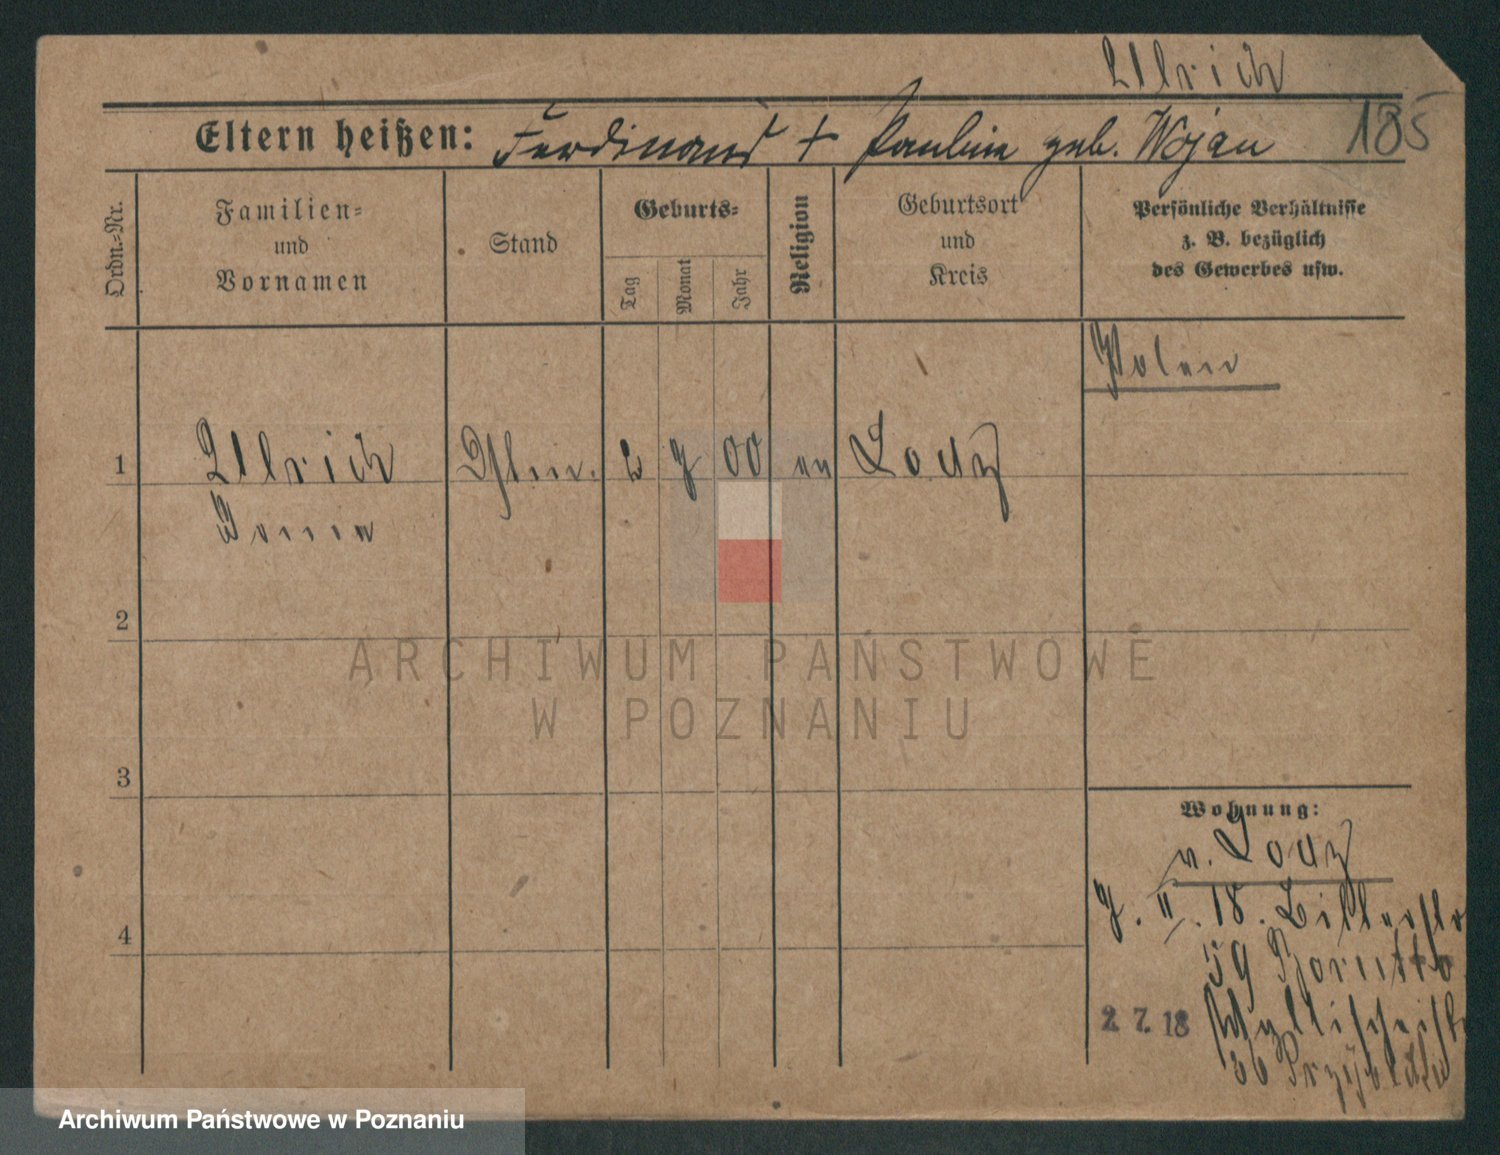 Ullrich
Eltern heißen: Ferdinand + Pauline geb. Wojan 185
Ordn.=Nr.
Familien=
und
Vornamen
Stand
Geburts=
Tag
Monat
Jahr
Religion
Geburtsort
und
Kreis
Persönliche Verhältnisse
z. B. bezüglich
des Gewerbes usw.
Polen
1 Ullrich 9 00 ev Lodz
2
3
4
Wohnung:
v. Lodz
9. II. 18.
59
2. 7. 18
36
ARCHIWUM PAŃSTWOWE
W POZNANIU
Archiwum Państwowe w Poznaniu